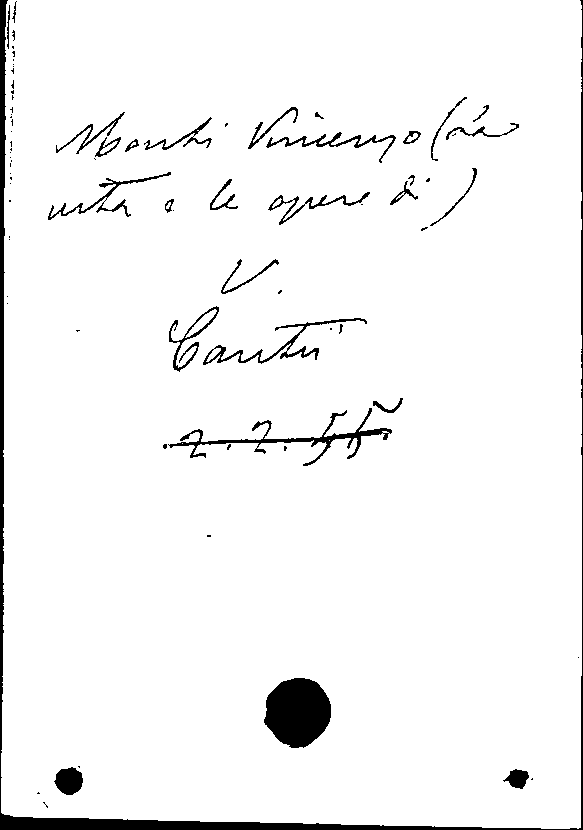 Monti Vincenzo (la
vita e le opere di)
V.
Cantù
2. 2. 55